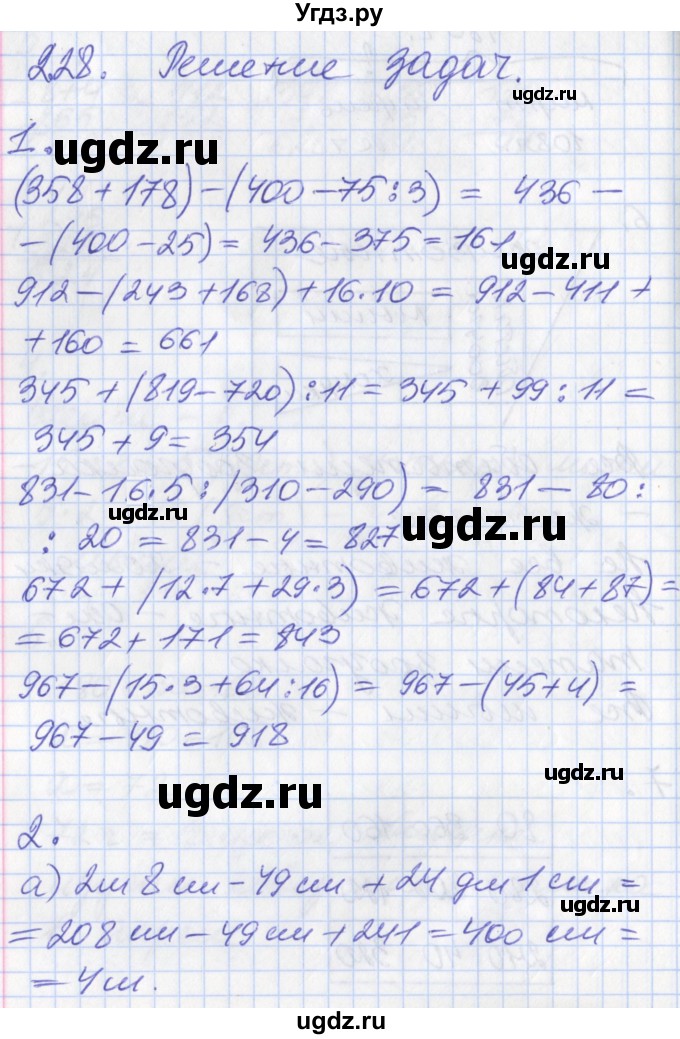 Угдз.ру
228. Решение задач.
ugdz.ru
1.
ugdz.ru
(358 + 178) - (400 - 75 : 3) = 436 -
- (400 - 25) = 436 - 375 = 161
ugdz.ru
912 - (243 + 168) + 16 · 10 = 912 - 411 +
+ 160 = 661
345 + (819 - 720) : 11 = 345 + 99 : 11 =
345 + 9 = 354
831 - 16 · 5 : (310 - 290) = 831 - 80 :
ugdz.ru
: 20 = 831 - 4 = 827
ugdz.ru
672 + (12 · 7 + 29 · 3) = 672 + (84 + 87) =
ugdz.ru
= 672 + 171 = 843
967 - (15 · 3 + 64 : 16) = 967 - (45 + 4) =
967 - 49 = 918
ugdz.ru
ugdz.ru
2.
а) 2м 8 см - 49 см + 24 дм 1 см =
ugdz.ru
= 208 см - 49 см + 241 = 400 см =
= 4 м.
ugdz.ru